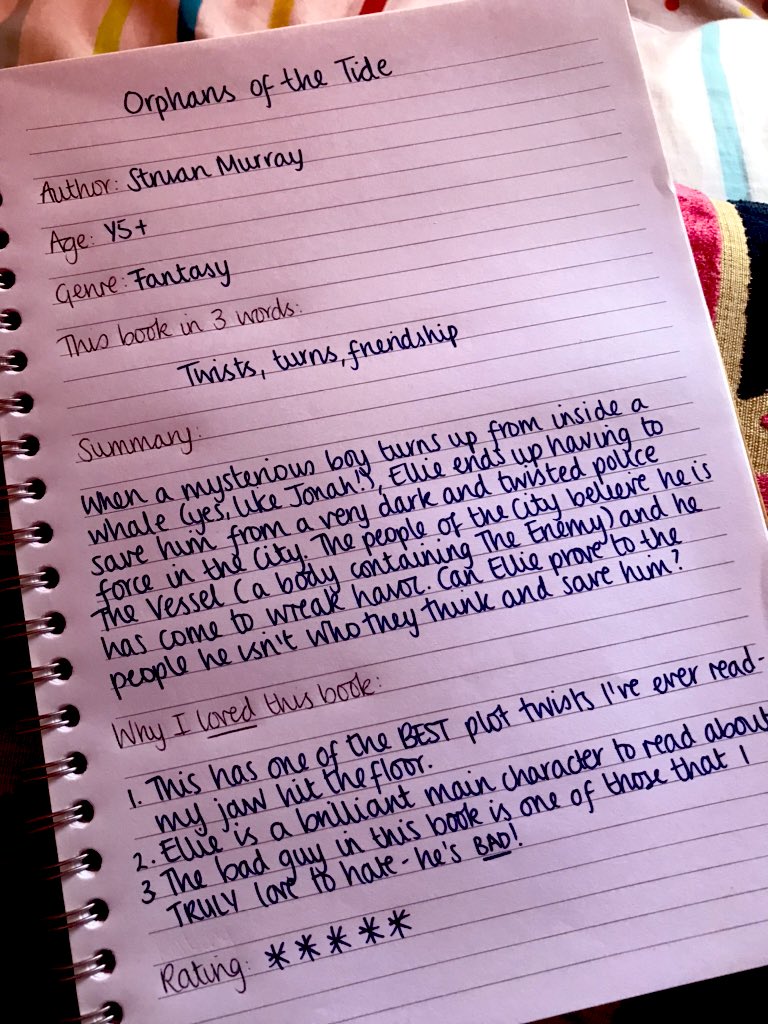 Orphans of the Tide
Author: Struan Murray
Age: Y5+
Genre: Fantasy
This book in 3 words:
Twists, turns, friendship
Summary:
When a mysterious boy turns up from inside a
whale (yes, like Jonah!), Ellie ends up having to
save him from a very dark and twisted police
force in the City. The people of the City believe he is
The Vessel (a body containing The Enemy) and he
has come to wreak havoc. Can Ellie prove to the
people he isn't who they think and save him?
Why I loved this book:
1. This has one of the BEST plot twists I've ever read-
my jaw hit the floor.
2. Ellie is a brilliant main character to read about
3 The bad guy in this book is one of those that I
TRULY love to hate - he's BAD!
Rating: *****